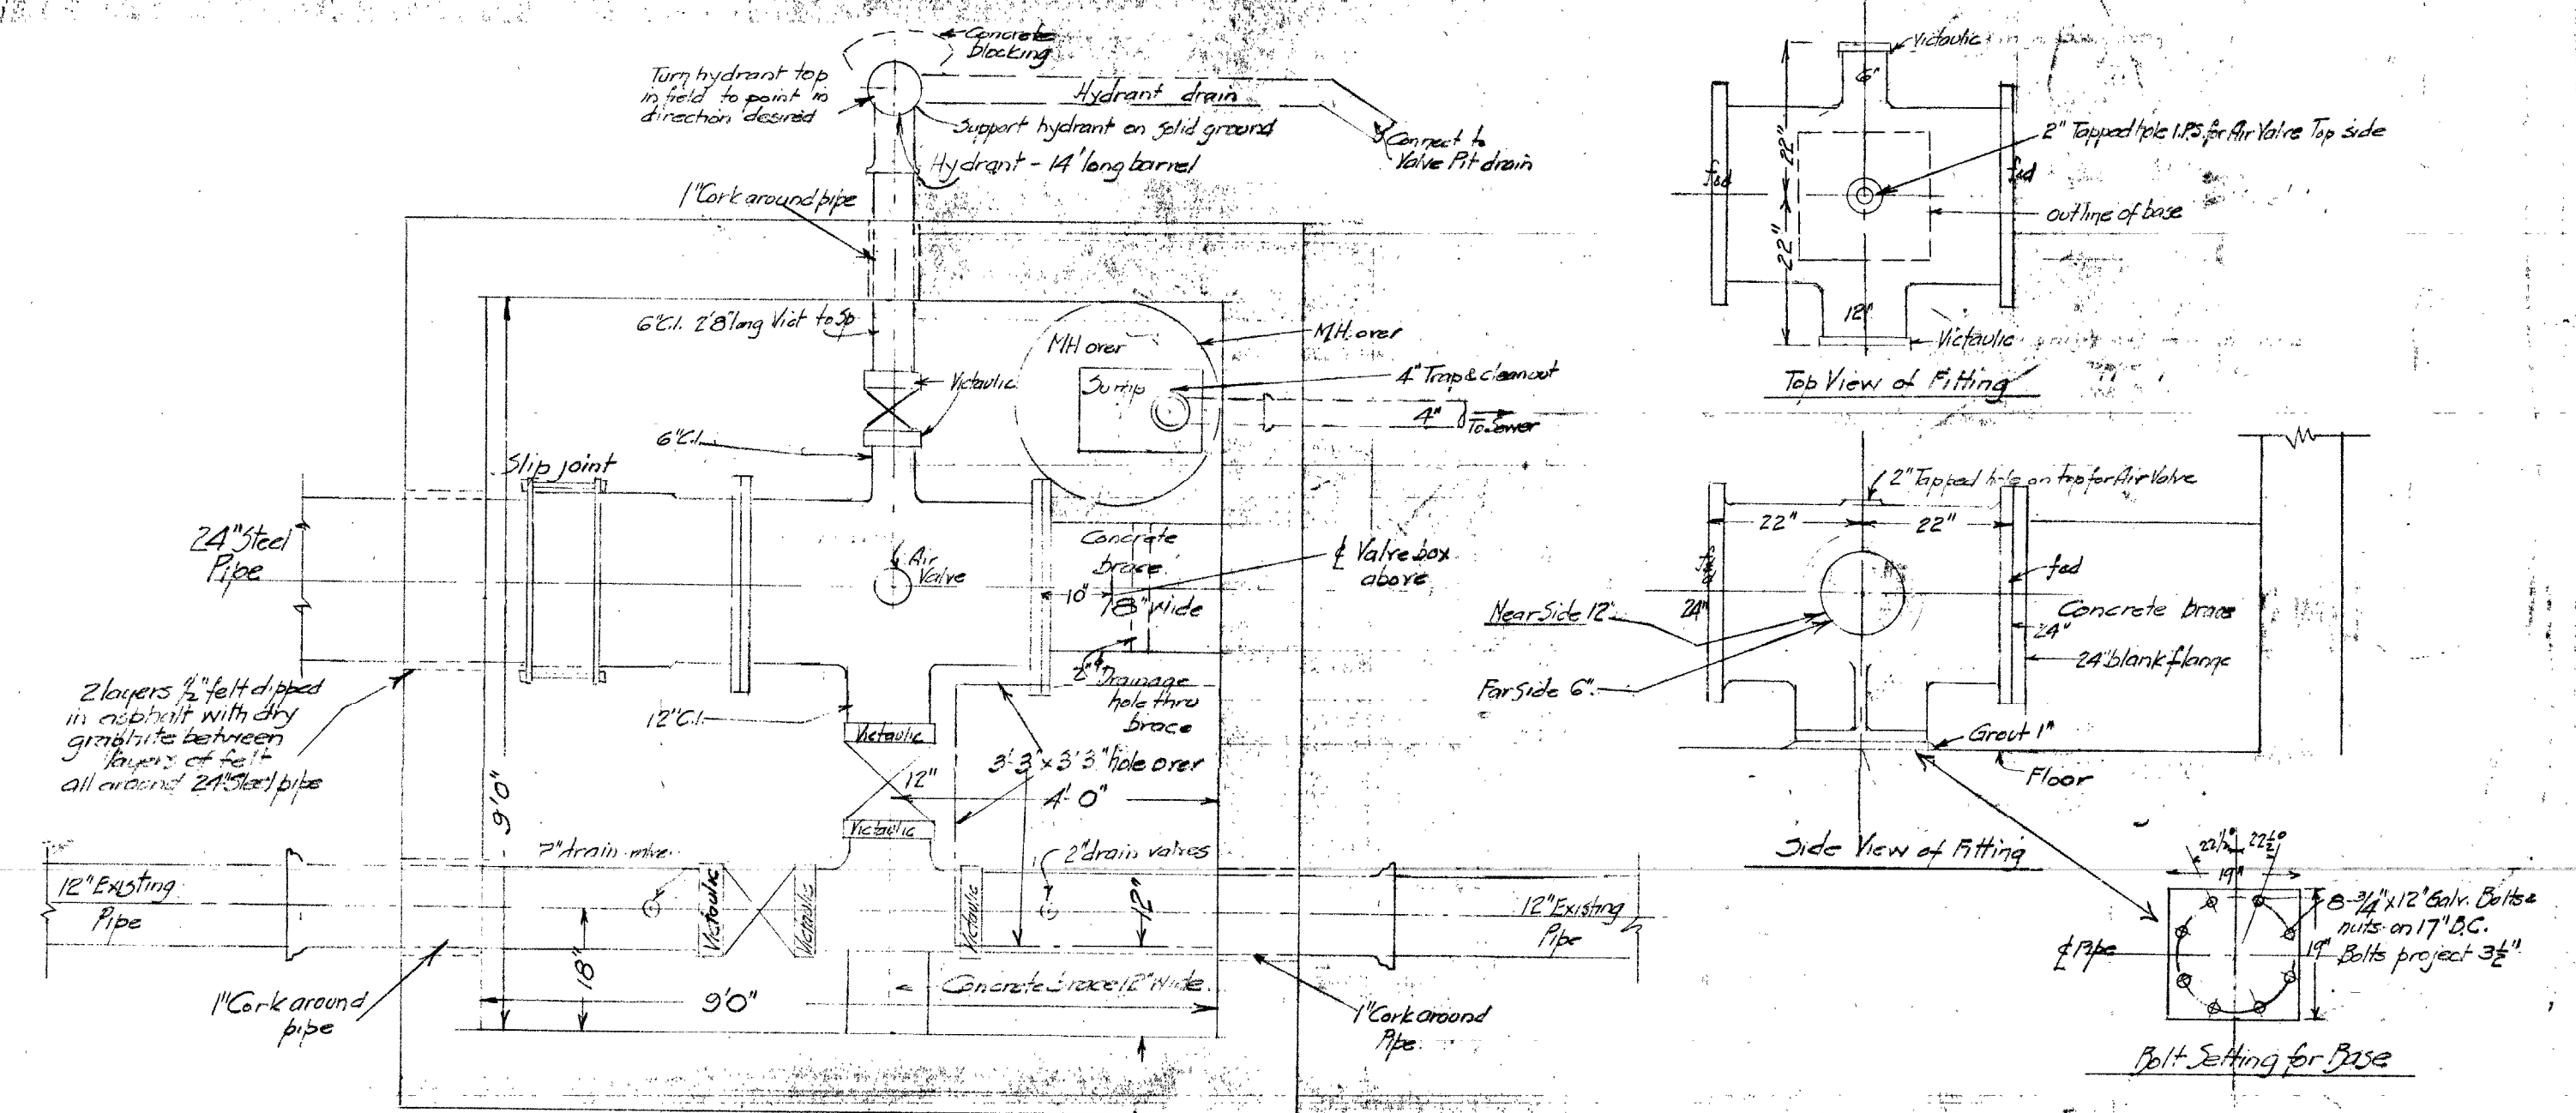 Concrete
blocking
Turn hydrant top
in field to point in
direction desired
Hydrant drain
Support hydrant on solid ground
Connect to
Valve Pit drain
Hydrant - 14' long barrel
1" Cork around pipe
6" C.I. 2'8" long Vict to Sp
MH over
MH over
Sump
4" Trap & cleanout
4"
To Sewer
Victaulic
6" C.I.
Slip joint
24" Steel
Pipe
Air
Valve
Concrete
brace
10"
18" Wide
℄ Valve box
above
2"
Drainage
hole thru
brace
2 layers ½" felt dipped
in asphalt with dry
graphite between
layers of felt
all around 24" Steel pipe
12" C.I.
Victaulic
12"
3'-3" x 3'3" hole over
4'-0"
9'0"
Victaulic
2" drain valves
12" Existing
Pipe
Victaulic
Victaulic
Victaulic
12"
12" Existing
Pipe
18"
9'0"
Concrete brace 12" Wide
1" Cork around
pipe
1" Cork around
Pipe
Victaulic
6"
2" Tapped hole I.P.S. for Air Valve Top side
22"
22"
f&d
f&d
outline of base
12"
Victaulic
Top View of Fitting
2" Tapped hole on top for Air Valve
22"
22"
f&d
24"
Near Side 12"
Far Side 6"
24"
Concrete brace
24" blank flange
Grout 1"
Floor
Side View of Fitting
22½°
22½°
19"
8-¾" x 12" Galv. Bolts &
nuts on 17" B.C.
Bolts project 3½"
19"
℄ Pipe
Bolt Setting for Base